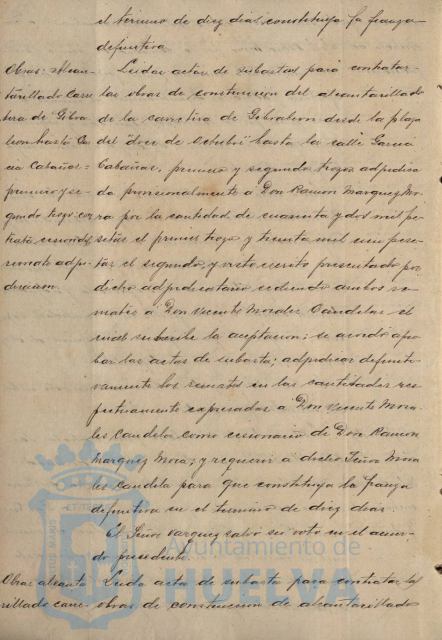 el término de diez dias constituya la fianza
definitiva.
Obras: Alcan-
tarillado Carre
tera de Gibra
leon hasta Ga
cia Cabañas=
primero y se-
gundo trozo con
trata
adju-
dicacion.
Leidas actas de subastas para contratar
las obras de construccion del alcantarillado
de la carretera de Gibraleon desde la plaza
del "doce de Octubre" hasta la calle Garcia
Cabañas, primero y segundo trozos adjudica
da provisionalmente á Don Ramon Marquez Mo
ra por la cantidad de cuarenta y dos mil pe
setas el primer trozo y treinta mil cien pese
tas el segundo, y visto escrito presentado por
dicho adjudicatario cediendo ambos re-
mates á Don Vicente Morales Candelas el
cual subscribe la aceptacion; se acordó apro
bar las actas de subasta; adjudicar definiti-
vamente los remates en las cantidades res-
pectivamente expresadas á Don Vicente Mora-
les Candela como cesionario de Don Ramon
Marquez Mora; y requerir á dicho Señor Mora
les Candela para que constituya la fianza
definitiva en el termino de diez dias.
El Señor Vazquez salvó su voto en el acuer-
do precedente.
Obras alcanta
rillado
Leida acta de subasta para contratar las
obras de construccion de alcantarillado
Ayuntamiento de
HUELVA